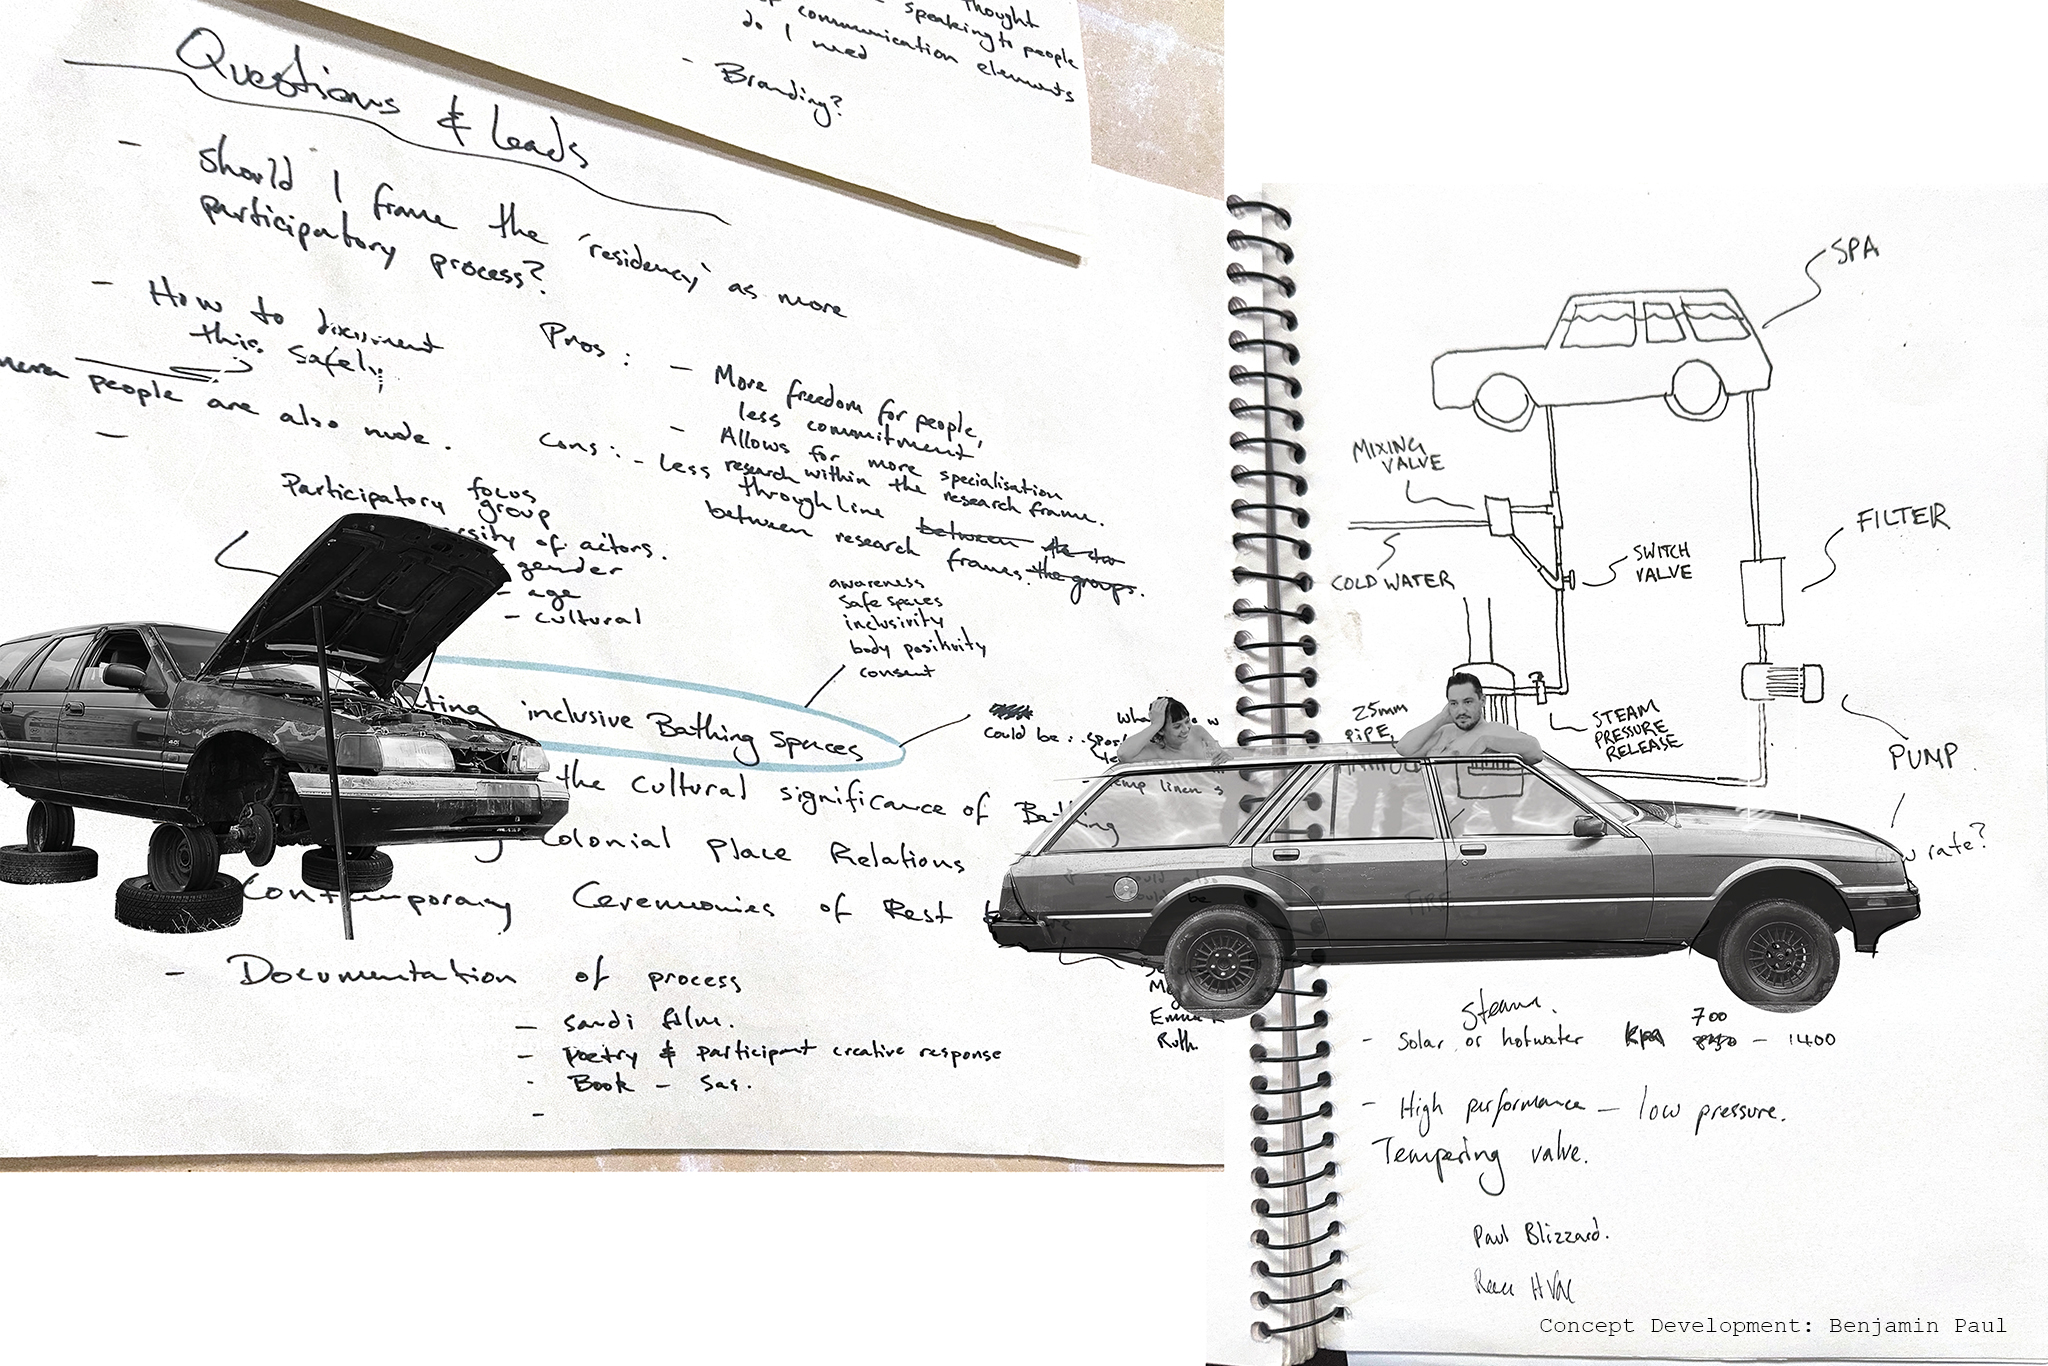 thought
speaking to people
communication elements
do I need
- Branding?
Questions & Leads
- Should I frame the 'residency' as more
participatory process?
- How to document
this safely
people are also nude.
-
Pros:
- More freedom for people,
less commitment
- Allows for more specialisation
research within the research frame.
Cons: - less
through line between the two
between research frames. the groups.
Participatory focus
group
of actors.
- gender
- age
- cultural
awareness
safe spaces
inclusivity
body positivity
consent
inclusive Bathing Spaces
could be:
the cultural significance of Bathing
Colonial Place Relations
Contemporary Ceremonies of Rest
- Documentation of process
- Sandi film.
- Poetry & participant creative response
- Book - Sas.
-
Ruth.
SPA
MIXING
VALVE
COLD WATER
SWITCH
VALVE
FILTER
STEAM
PRESSURE
RELEASE
25mm
PIPE
PUMP
rate?
FIRE
Steam.
- Solar or hotwater kpa 700 - 1400
- High performance - low pressure.
Tempering valve.
Paul Blizzard.
HVAC
Concept Development: Benjamin Paul